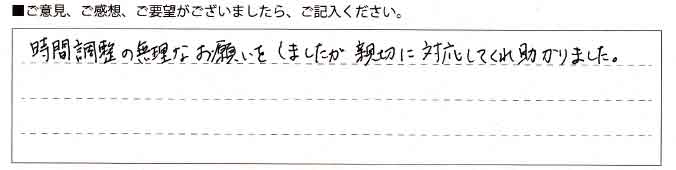 ■ご意見、ご感想、ご要望がございましたら、ご記入ください。
時間調整の無理なお願いをしましたが親切に対応してくれ助かりました。